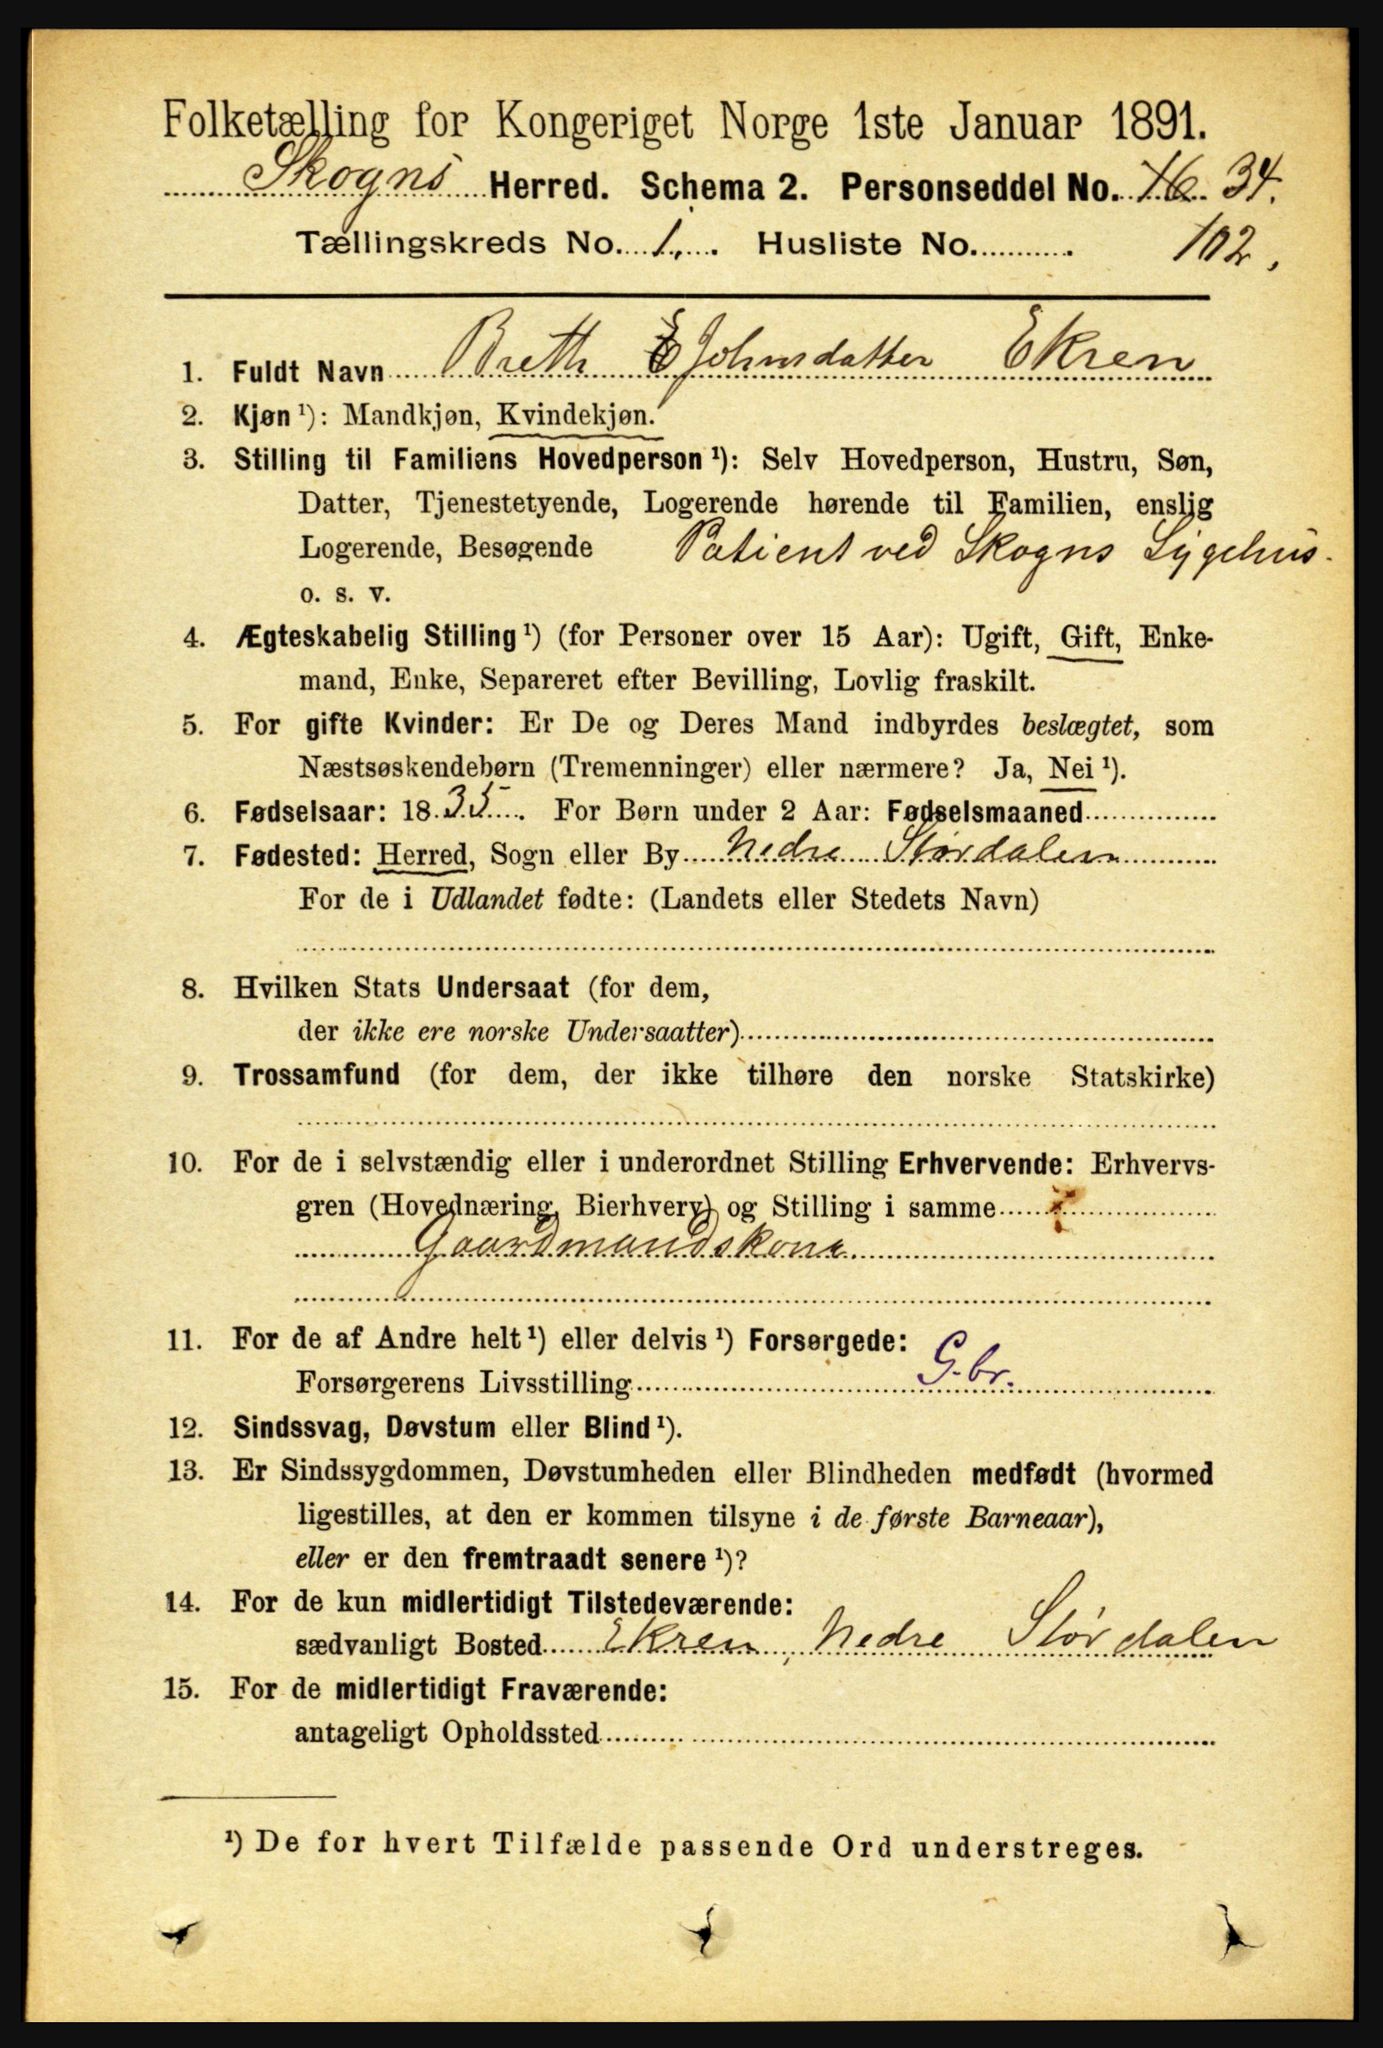 Folketælling for Kongeriget Norge 1ste Januar 1891.
Skogns Herred. Schema 2. Personseddel No. 16. 34.
Tællingskreds No. 1. Husliste No. 102.
1. Fuldt Navn Breth E Johnsdatter Ekren
2. Kjøn ¹): Mandkjøn, Kvindekjøn.
3. Stilling til Familiens Hovedperson ¹): Selv Hovedperson, Hustru, Søn,
Datter, Tjenestetyende, Logerende hørende til Familien, enslig
Logerende, Besøgende Patient ved Skogns Sygehus.
o. s. v.
4. Ægteskabelig Stilling ¹) (for Personer over 15 Aar): Ugift, Gift, Enke-
mand, Enke, Separeret efter Bevilling, Lovlig fraskilt.
5. For gifte Kvinder: Er De og Deres Mand indbyrdes beslægtet, som
Næstsøskendebørn (Tremenninger) eller nærmere? Ja, Nei ¹).
6. Fødselsaar: 1835. For Børn under 2 Aar: Fødselsmaaned
7. Fødested: Herred, Sogn eller By Nedre Størdalen
For de i Udlandet fødte: (Landets eller Stedets Navn)
8. Hvilken Stats Undersaat (for dem,
der ikke ere norske Undersaatter)
9. Trossamfund (for dem, der ikke tilhøre den norske Statskirke)
10. For de i selvstændig eller i underordnet Stilling Erhvervende: Erhvervs-
gren (Hovednæring, Bierhverv) og Stilling i samme
Gaardmandskone
11. For de af Andre helt ¹) eller delvis ¹) Forsørgede:
Forsørgerens Livsstilling G.br.
12. Sindssvag, Døvstum eller Blind ¹).
13. Er Sindssygdommen, Døvstumheden eller Blindheden medfødt (hvormed
ligestilles, at den er kommen tilsyne i de første Barneaar),
eller er den fremtraadt senere ¹)?
14. For de kun midlertidigt Tilstedeværende:
sædvanligt Bosted Ekren, Nedre Størdalen
15. For de midlertidigt Fraværende:
antageligt Opholdssted
¹) De for hvert Tilfælde passende Ord understreges.